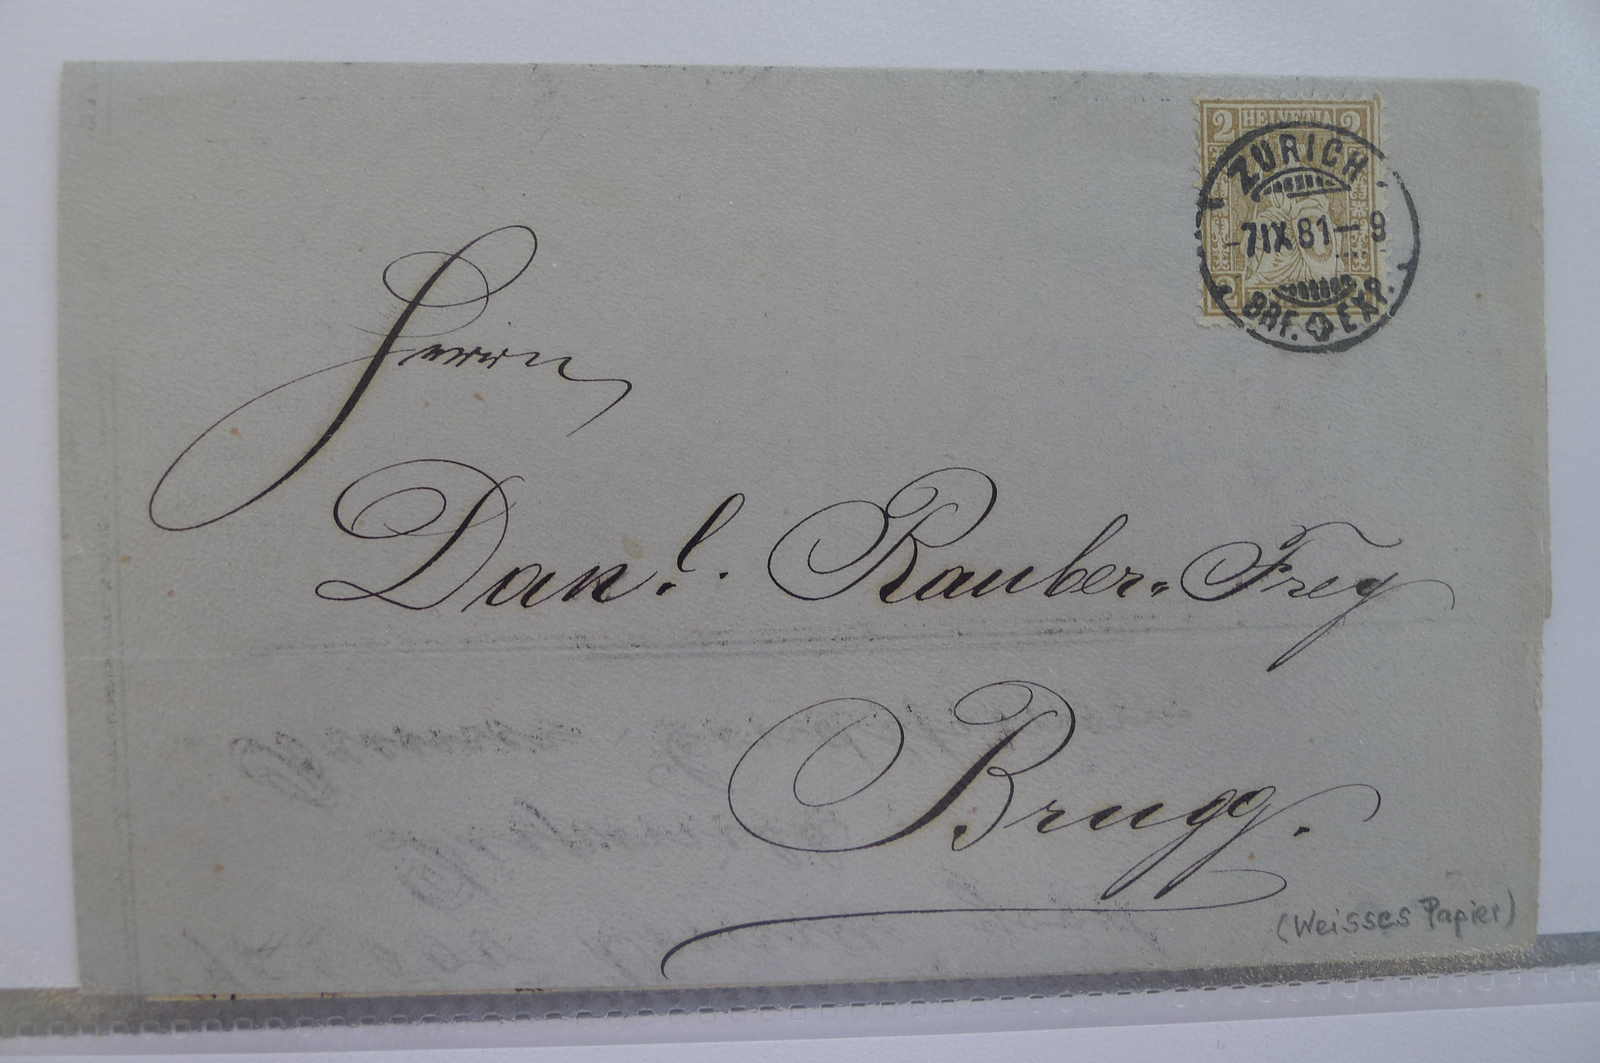 2 HELVETIA 2
ZÜRICH
-7IX81-9
BRF. EXP.
2
Herrn
Dan!. Rauber-Frey
Brugg.
(Weisses Papier)